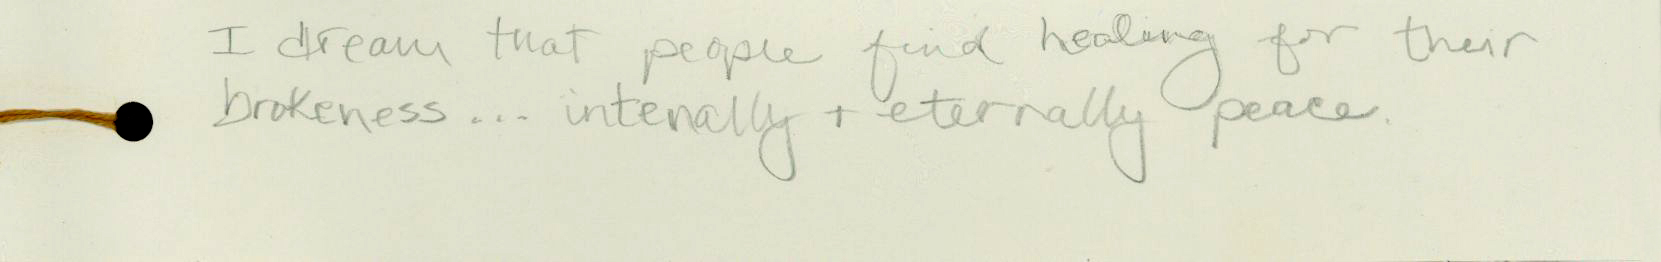 I dream that people find healing for their
brokeness... intenally + eternally peace.